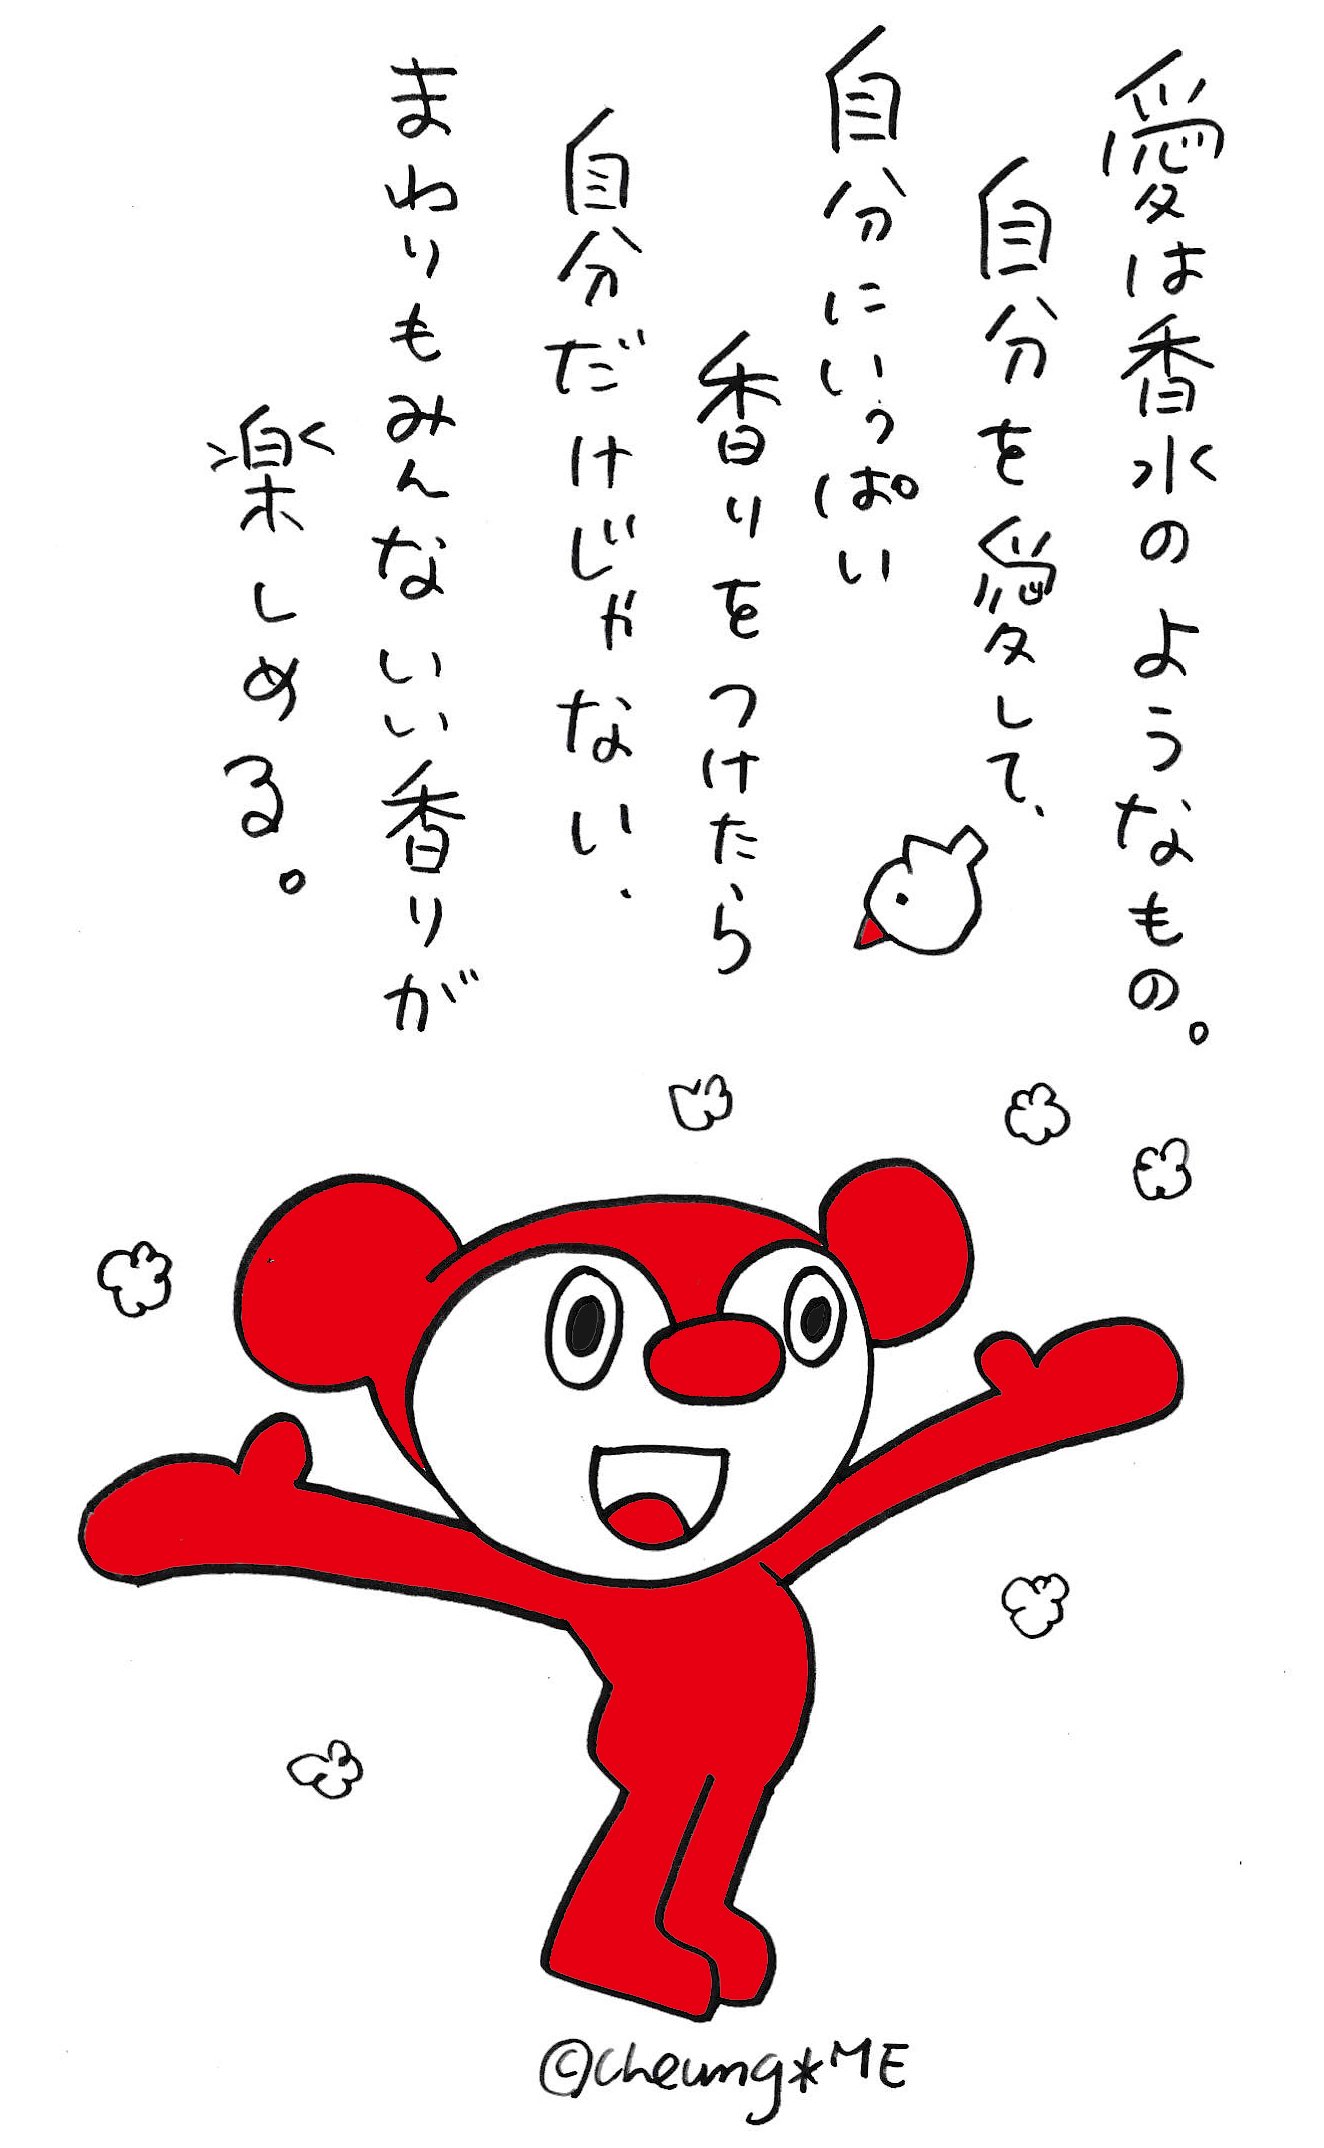 愛は香水のようなもの。
自分を愛して、
自分にいっぱい
香りをつけたら
自分だけじゃない、
まわりもみんないい香りが
楽しめる。
©cheung*ME